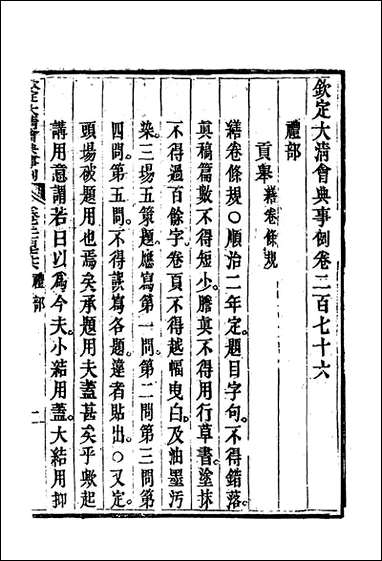 欽定大清會典事例卷二百七十六
禮部
貢舉 繕卷條規
繕卷條規○順治二年定。題目字句。不得錯落。
眞稿篇數不得短少。謄眞不得用行草書。塗抹
不得過百餘字。卷頁不得越幅曳白。及油墨污
染。三場五策題。應寫第一問。第二問第三問第
四問。第五問。不得誤寫各題。違者貼出。○又定。
頭場破題用也焉矣承題用夫蓋甚矣乎歟起
講用意謂若曰以爲今夫。小結用蓋。大結用抑
禮部
二